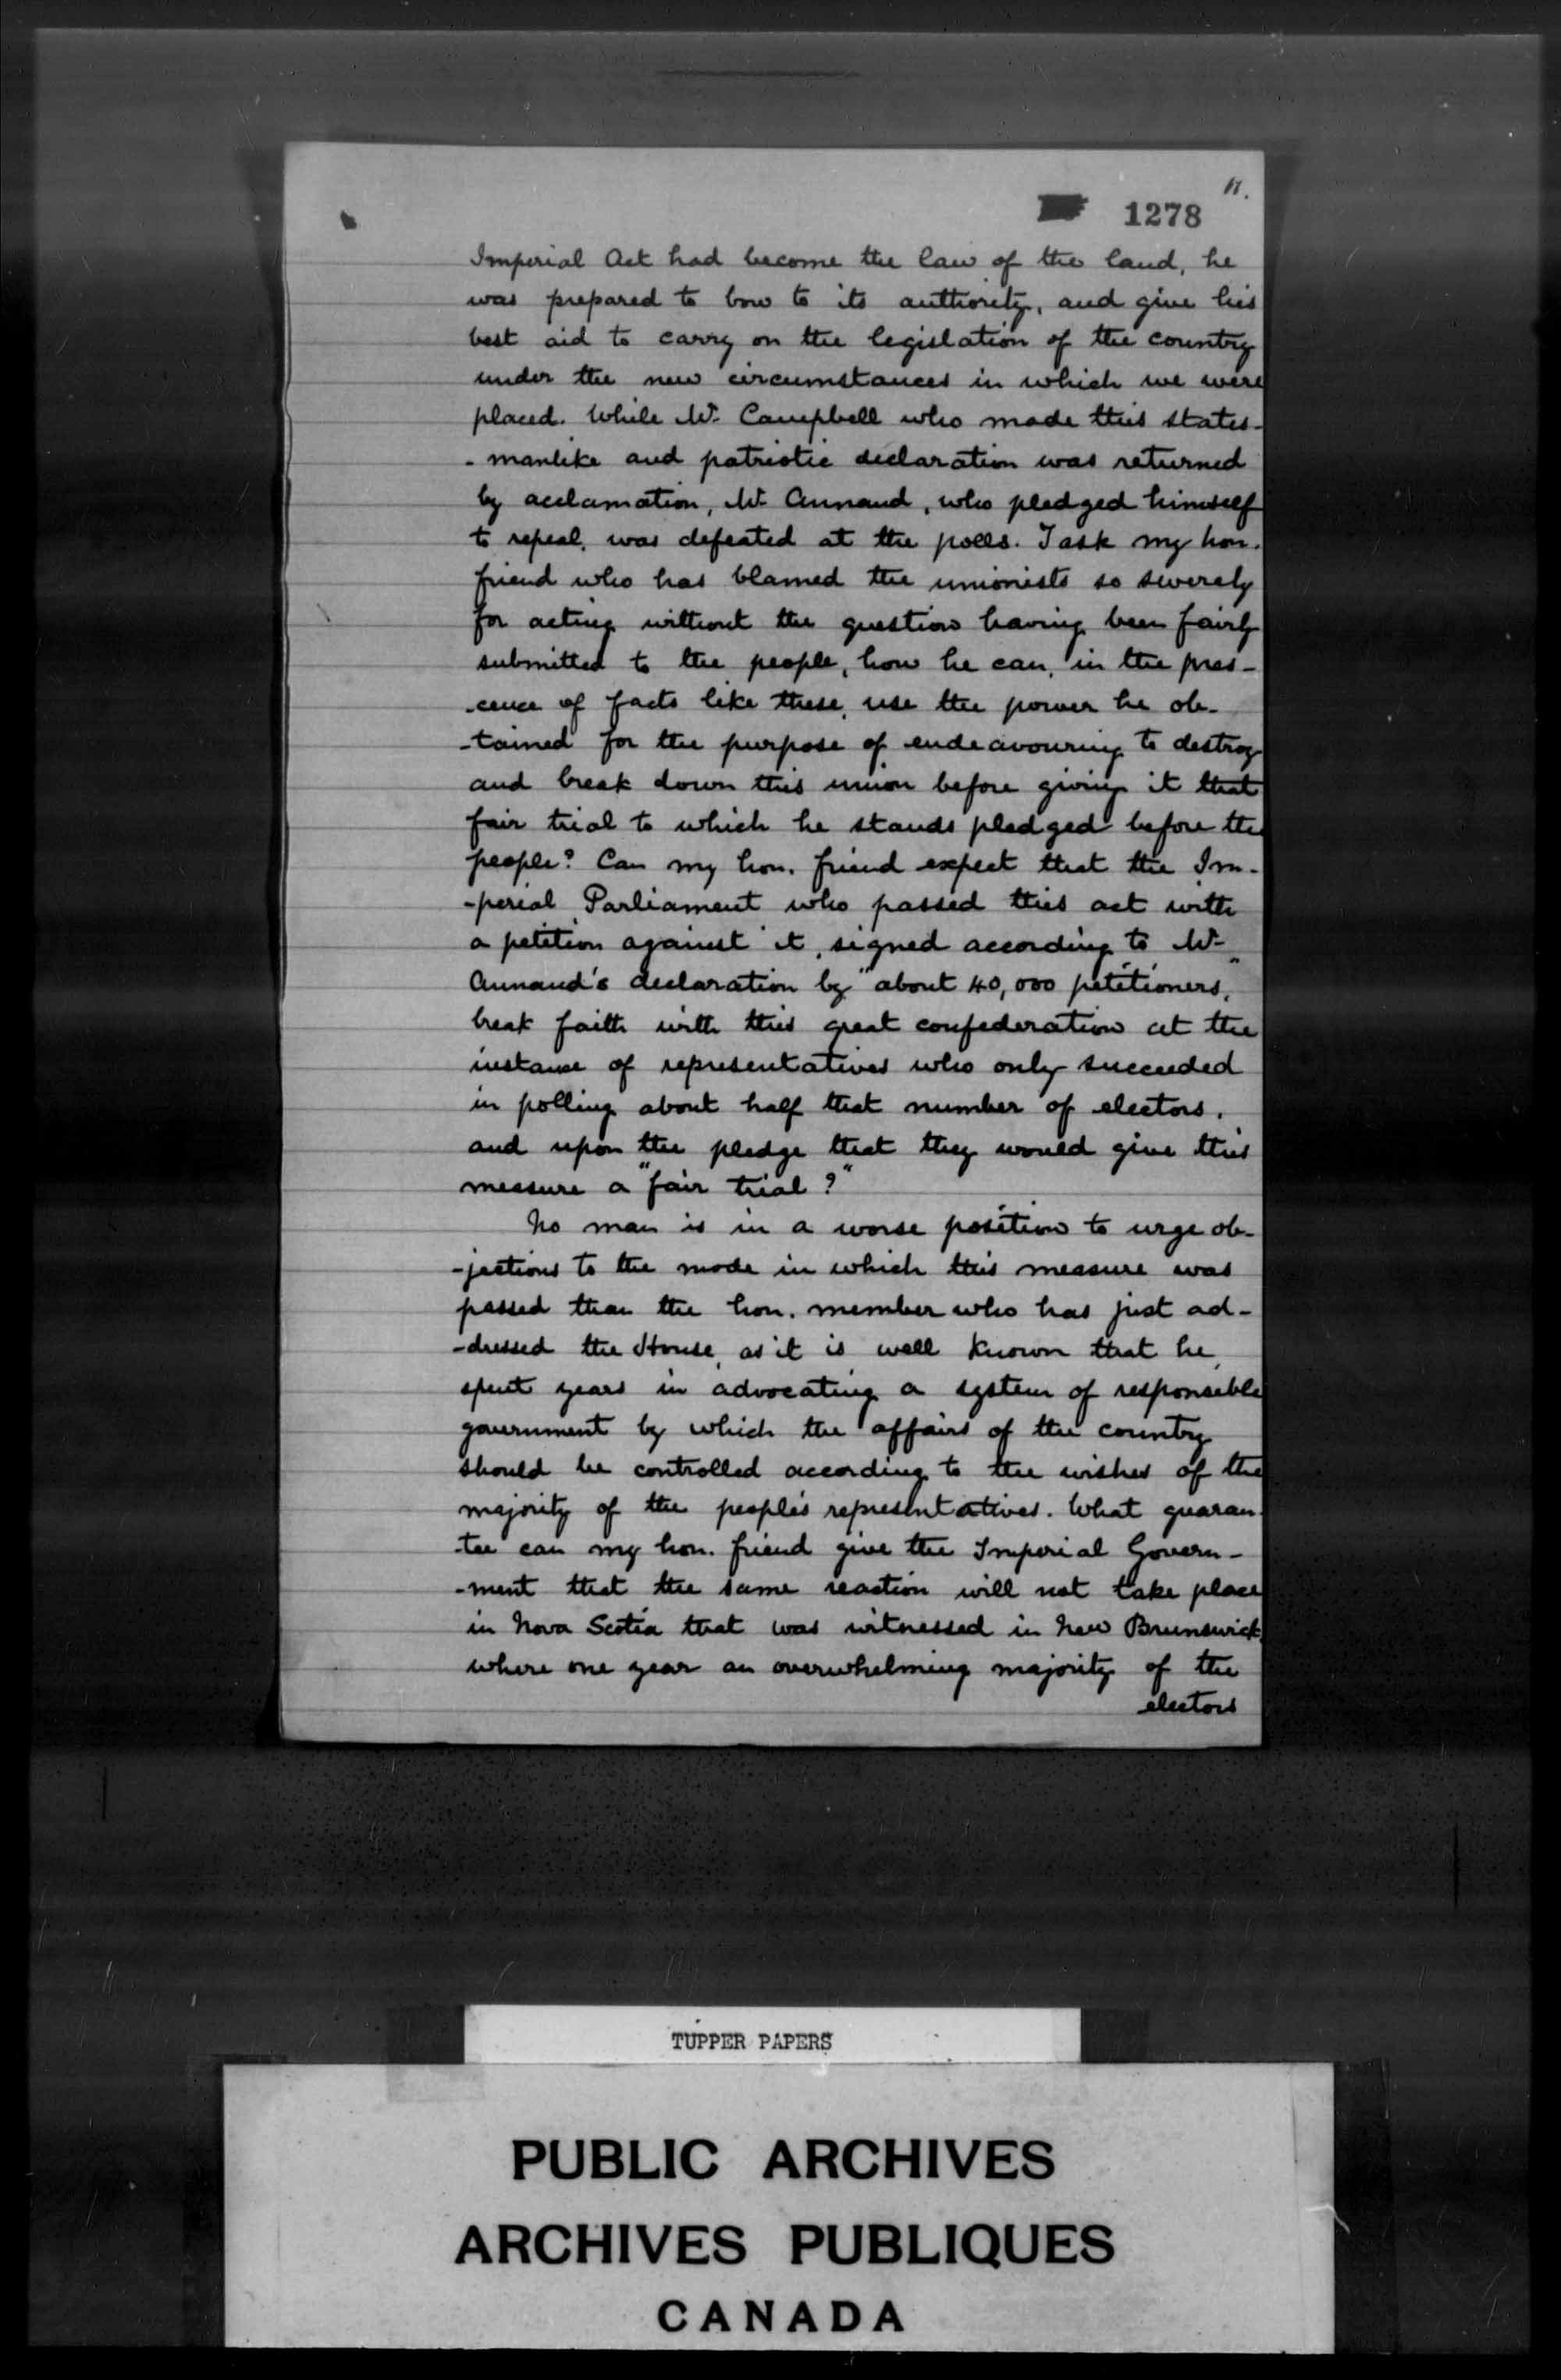 11.
1278
Imperial Act had become the law of the land, he
was prepared to bow to its authority, and give his
best aid to carry on the legislation of the country
under the new circumstances in which we were
placed. While Mr. Campbell who made this states-
-manlike and patriotic declaration was returned
by acclamation, Mr. Annand, who pledged himself
to repeal, was defeated at the polls. I ask my hon.
friend who has blamed the unionists so severely
for acting without the question having been fairly
submitted to the people, how he can, in the pres-
-cence of facts like these, use the power he ob-
-tained for the purpose of endeavouring to destroy
and break down this union before giving it that
fair trial to which he stands pledged before the
people? Can my hon. friend expect that the Im-
-perial Parliament who passed this act with
a petition against it, signed according to Mr.
Annand's declaration by "about 40,000 petitioners,"
break faith with this great confederation at the
instance of representatives who only succeeded
in polling about half that number of electors,
and upon the pledge that they would give this
measure a "fair trial?"
No man is in a worse position to urge ob-
-jections to the mode in which this measure was
passed than the hon. member who has just ad-
-dressed the House, as it is well known that he
spent years in advocating a system of responsible
government by which the affairs of the country
should be controlled according to the wishes of the
majority of the people's representatives. What guaran-
-tee can my hon. friend give the Imperial Govern-
-ment that the same reaction will not take place
in Nova Scotia that was witnessed in New Brunswick,
where one year an overwhelming majority of the
electors
TUPPER PAPERS
PUBLIC ARCHIVES
ARCHIVES PUBLIQUES
CANADA